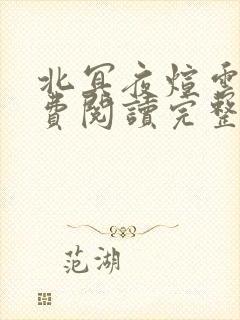 北冥夜煊雲
費閱讀完整
范湖